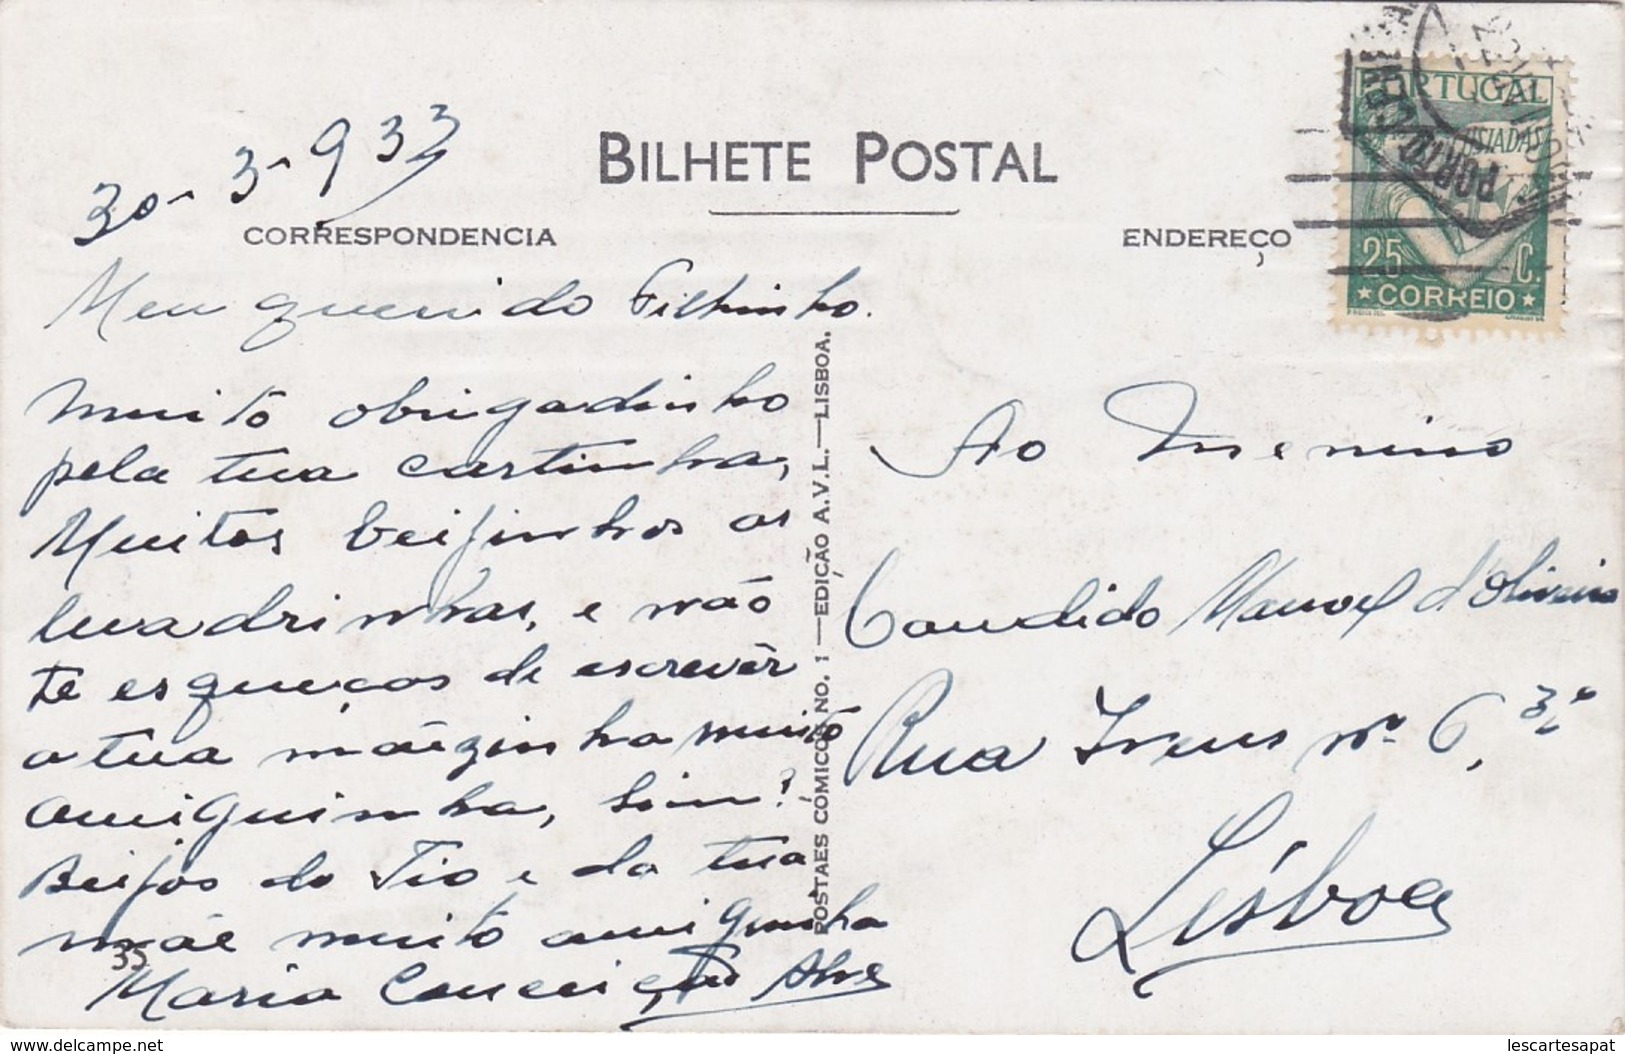 BILHETE POSTAL
CORRESPONDENCIA
ENDEREÇO
30-3-933
Meu querido Filhinho.
Muito obrigadinho
pela tua cartinha,
Muitos beijinhos as
quadrinhas, e não
te esqueças de escrever
a tua mãezinha muito
amiguinha, sim?
Beijos do Tio e da tua
mãe muito amiguinha
Maria Conceição Alve
35
POSTAES CÓMICOS NO. 1 — EDIÇÃO A.V.L. — LISBOA.
PORTUGAL
LUSIADAS
25 C.
★ CORREIO ★
PORTO
Ao Menino
Candido Manoel d'Oliveira
Rua Ivens nº 6, 3º
Lisboa
delcampe.net
lescartesapat